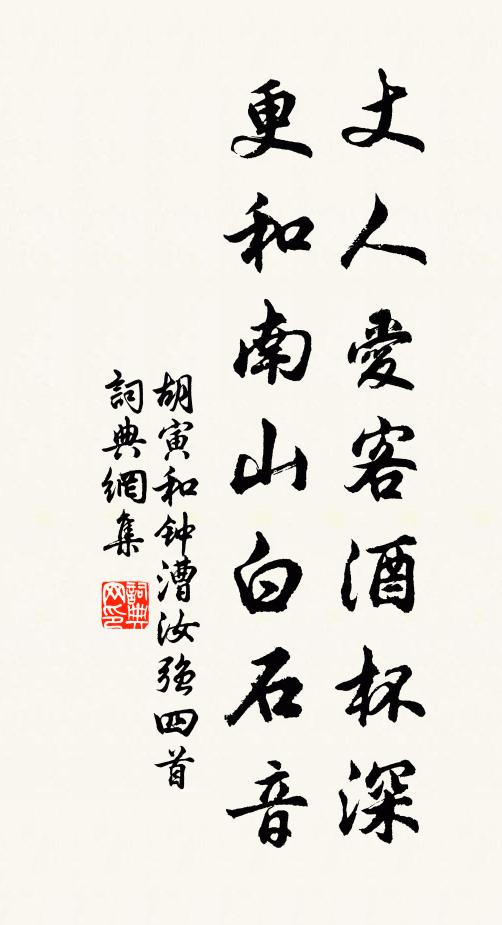 丈人愛客酒杯深
更和南山白石音
胡寅和钟漕汝強四首
詞典網集
詞典网印